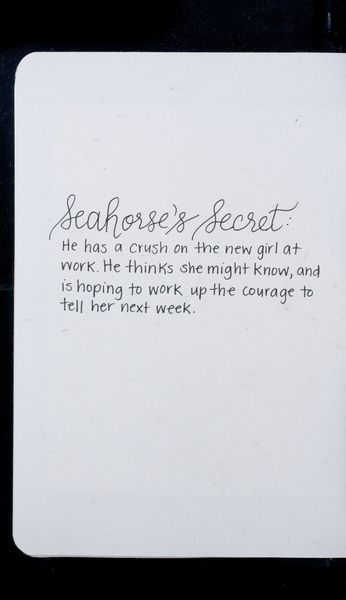 Seahorse's Secret:
He has a crush on the new girl at
work. He thinks she might know, and
is hoping to work up the courage to
tell her next week.